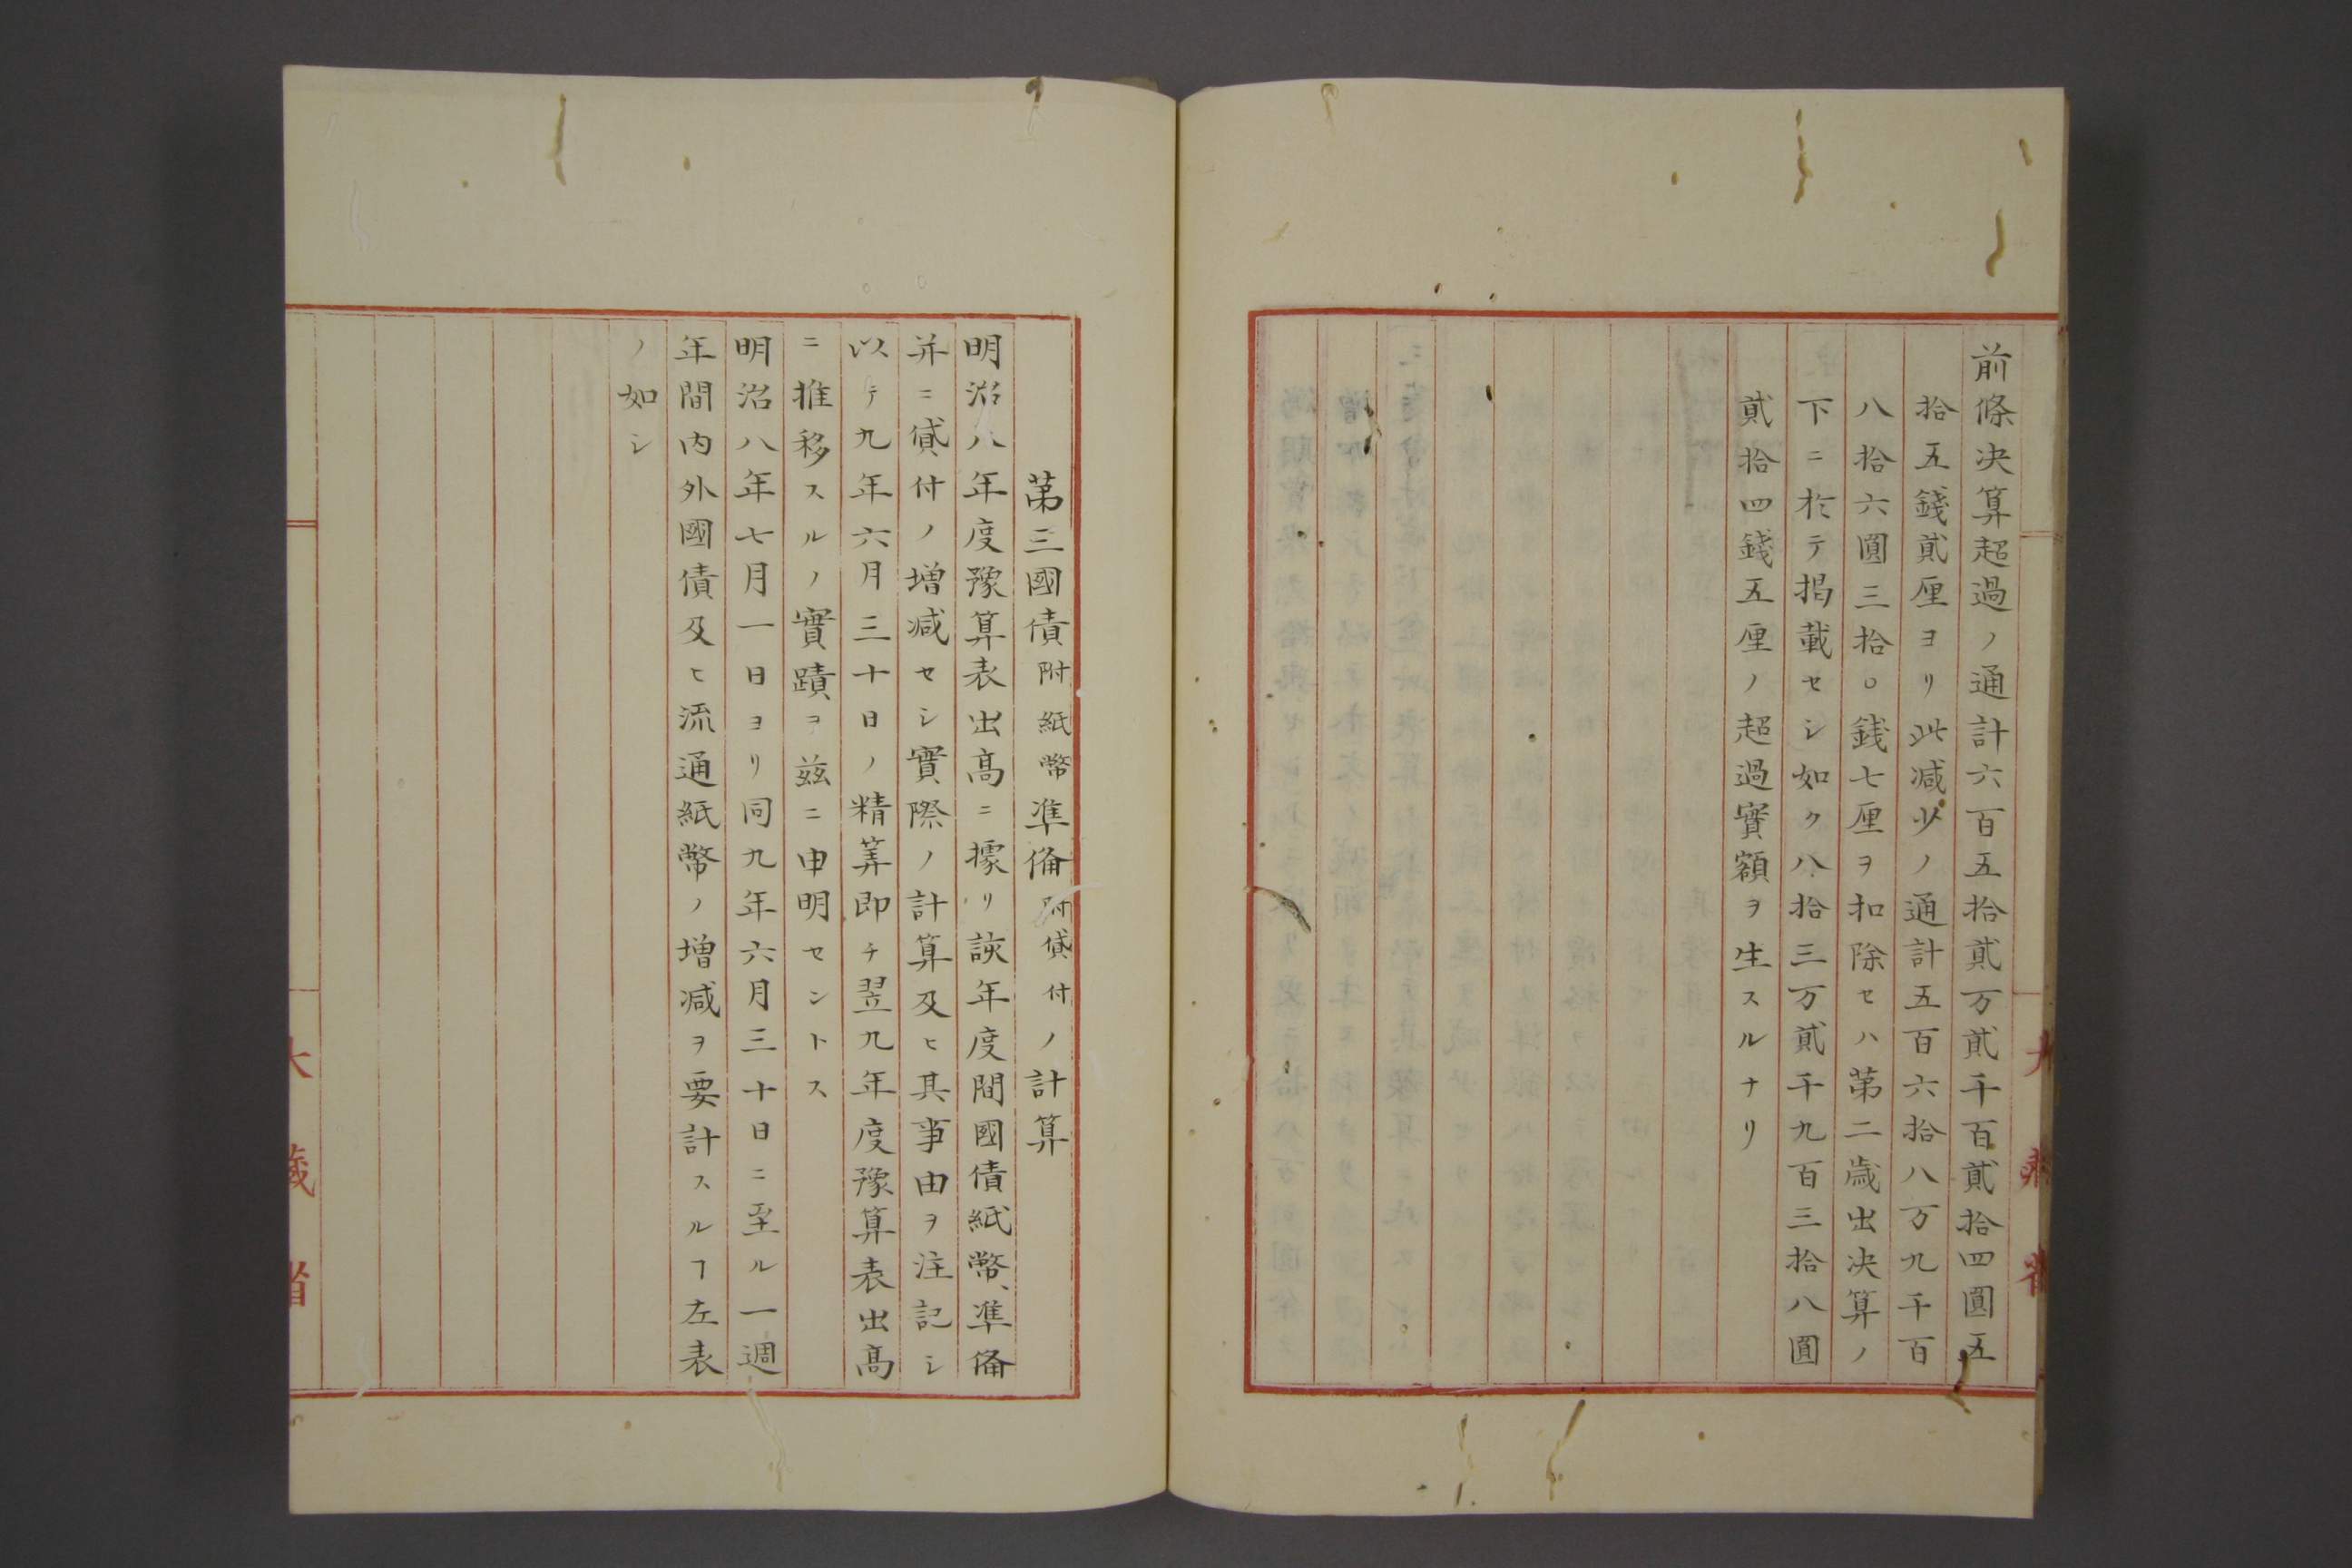 前條决算超過ノ通計六百五拾貳万貳千百貳拾四圓五
拾五錢貳厘ヨリ此减少ノ通計五百六拾八万九千百
八拾六圓三拾〇銭七厘ヲ扣除セハ第二歳出决算ノ
下ニ於テ掲載セシ如ク八拾三万貳千九百三拾八圓
貳拾四錢五厘ノ超過實額ヲ生スルナリ
大藏省
第三國債附紙幣準備附貸付ノ計算
明治八年度豫算表出高ニ據リ該年度間國債紙幣、準備
并ニ貸付ノ増减セシ實際ノ計算及ヒ其事由ヲ注記シ
以テ九年六月三十日ノ精筭即チ翌九年度豫算表出高
ニ推移スルノ實蹟ヲ茲ニ申明セントス
明治八年七月一日ヨリ同九年六月三十日ニ至ル一週
年間内外國債及ヒ流通紙幣ノ増减ヲ要計スルヿ左表
ノ如シ
大藏省